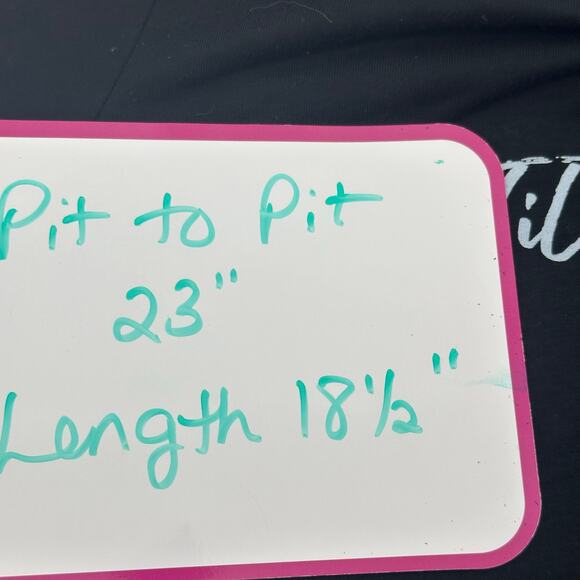 Pit to Pit
23"
Length 18 1/2"